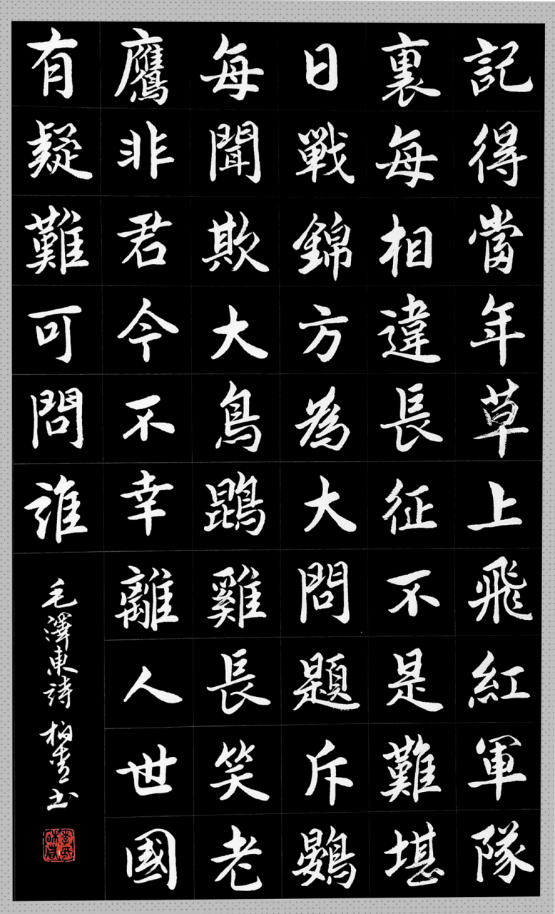 記得當年草上飛紅軍隊
裏每相違長征不是難堪
日戰錦方為大問題斥鷃
每聞欺大鳥鵾雞長笑老
鷹非君今不幸離人世國
有疑難可問誰
毛澤東詩 柏青书